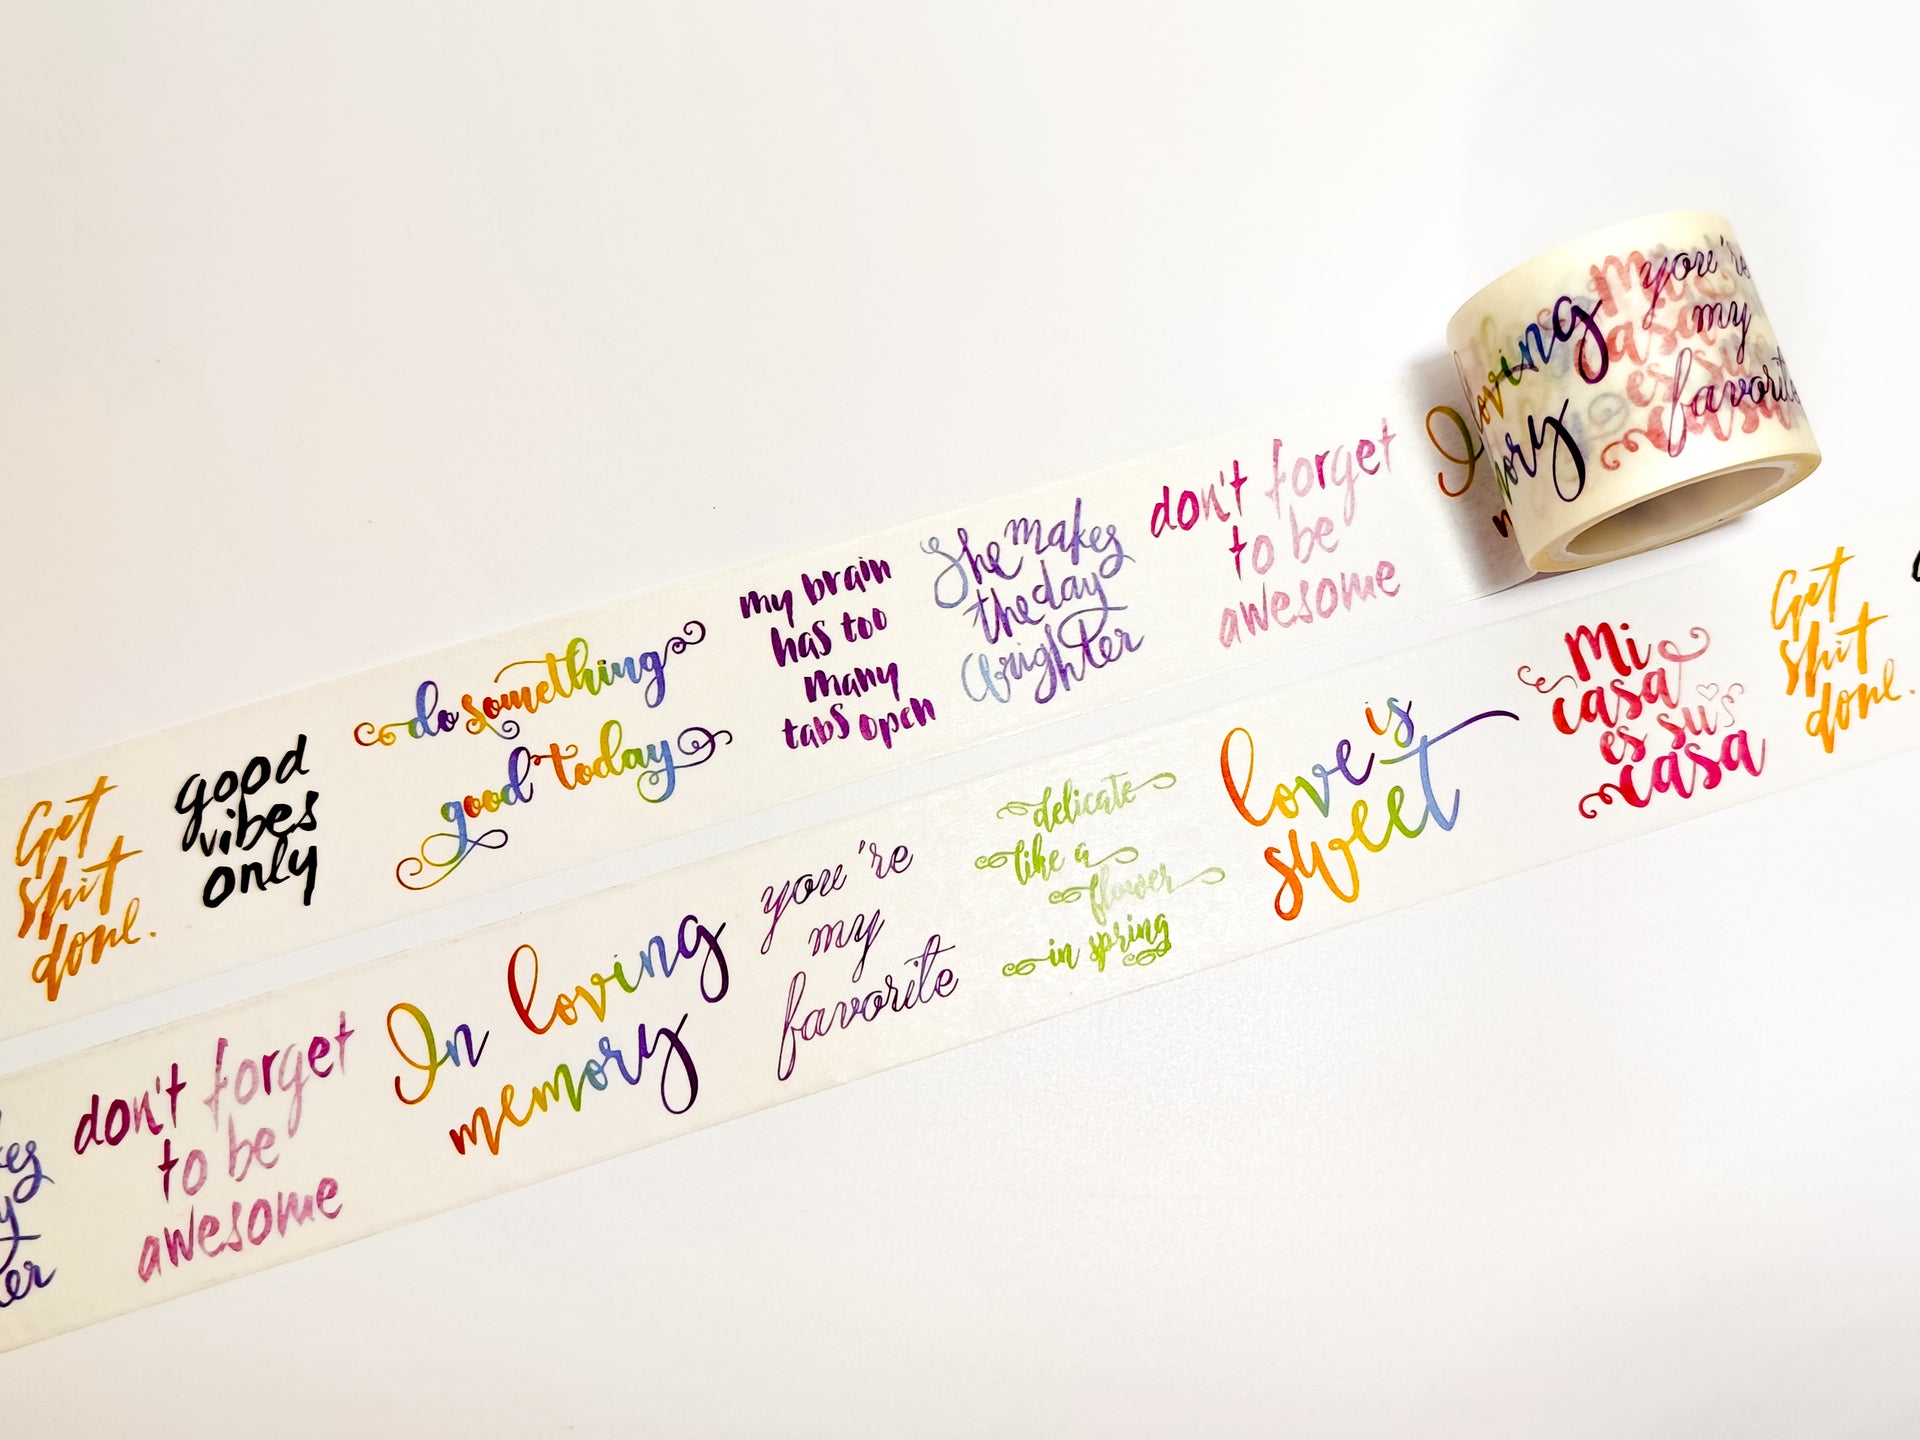 Get
shit
done.
good
vibes
only
do something
good today
my brain
has too
many
tabs open
She makes
the day
brighter
don't forget
to be
awesome
In loving
memory
you're
my
favorite
Mi
casa
es su
casa
don't forget
to be
awesome
In loving
memory
you're
my
favorite
delicate
like a
flower
in spring
love is
sweet
Mi
casa
es su
casa
Get
shit
done.